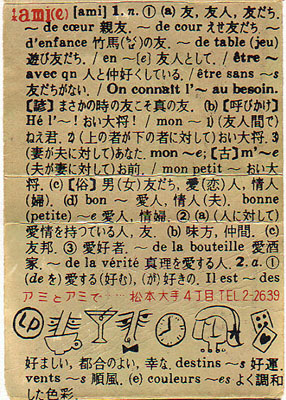 ami(e) [ami] 1. n. ① (a) 友, 友人, 友だち.
~ de cœur 親友. ~ de cour えせ友だち. ~
d'enfance 竹馬(ちくば)の友. ~ de table (jeu)
遊び友だち. / en ~[e] 友人として. / être ~
avec qn 人と仲好くしている. / être sans ~s
友だちがない. / On connaît l'~ au besoin.
[諺] まさかの時の友こそ真の友. (b) [呼びかけ]
Hé l'~! おい大将! / mon ~ 1) (友人間で)
ねえ君. 2) (上の者が下の者に対して)おい大将. 3)
(妻が夫に対して)あなた. mon ~e; [古] m'~e
(夫が妻に対して)お前. / mon petit ~ おい大
将. (c) [俗] 男(女)友だち, 愛(恋)人, 情人
(婦). (d) bon ~ 愛人(夫). bonne
(petite) ~e 愛人, 情婦. ② (a) (人に対して)
愛情を持っている人, 友. (b) 味方, 仲間. (c)
友邦. ③ 愛好者. ~ de la bouteille 愛酒
家. ~ de la vérité 真理を愛する人. 2. a. ①
(de を)愛する(好む), (が)好きの. Il est ~ des
アミとアミで‥‥‥松本大手4丁目 TEL 2-2639
LP
好ましい, 都合のよい, 幸な. destins ~s 好運.
vents ~s 順風. (e) couleurs ~es よく調和
した色彩.